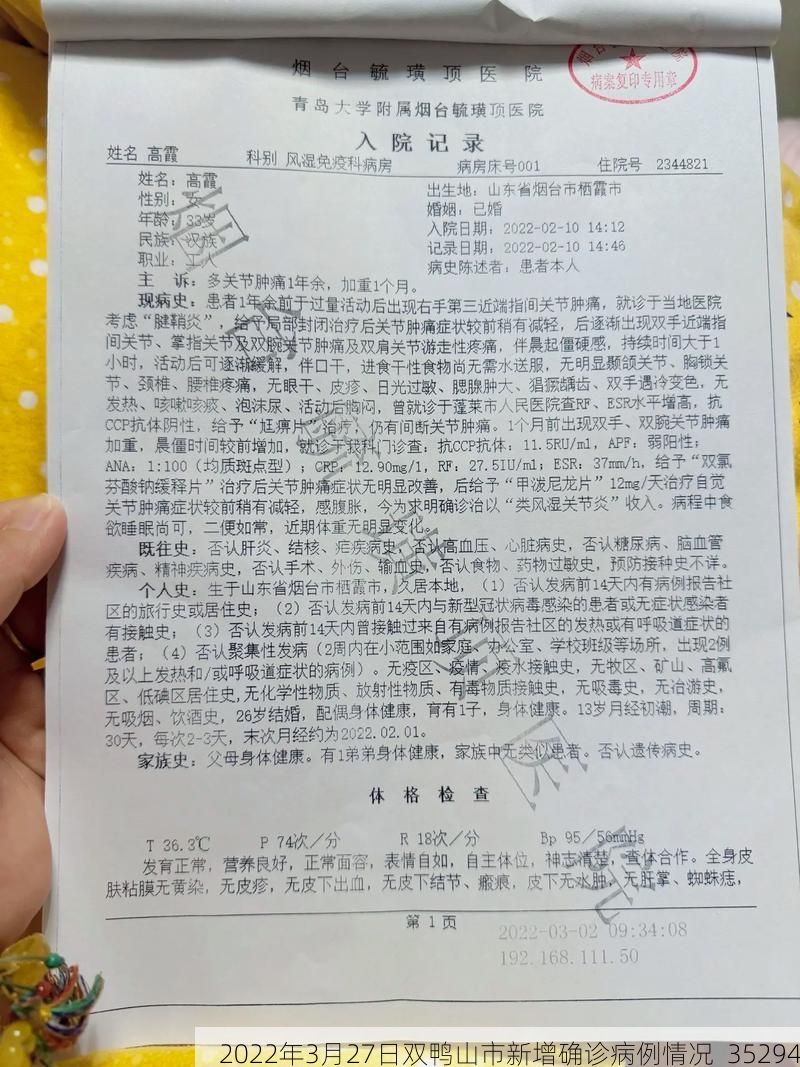 烟台毓璜顶医院
病案复印专用章
青岛大学附属烟台毓璜顶医院
入院记录
姓名 高霞 科别 风湿免疫科病房 病房床号001 住院号 2344821
姓名：高霞 出生地：山东省烟台市栖霞市
性别：女 婚姻：已婚
年龄：33岁 入院日期：2022-02-10 14:12
民族：汉族 记录日期：2022-02-10 14:46
职业：工人 病史陈述者：患者本人
主 诉：多关节肿痛1年余，加重1个月。
现病史：患者1年余前于过量活动后出现右手第三近端指间关节肿痛，就诊于当地医院
考虑“腱鞘炎”，给予局部封闭治疗后关节肿痛症状较前稍有减轻，后逐渐出现双手近端指
间关节、掌指关节及双腕关节肿痛及双肩关节游走性疼痛，伴晨起僵硬感，持续时间大于1
小时，活动后可逐渐缓解，伴口干，进食干性食物尚无需水送服，无明显颞颌关节、胸锁关
节、颈椎、腰椎疼痛，无眼干、皮疹、日光过敏、腮腺肿大、猖獗龋齿、双手遇冷变色，无
发热、咳嗽咳痰、泡沫尿、活动后胸闷，曾就诊于蓬莱市人民医院查RF、ESR水平增高，抗
CCP抗体阴性，给予“尪痹片”治疗，仍有间断关节肿痛。1个月前出现双手、双腕关节肿痛
加重，晨僵时间较前增加，就诊于我科门诊查：抗CCP抗体：11.5RU/ml，APF：弱阳性；
ANA：1:100（均质斑点型）；CRP：12.90mg/l，RF：27.5IU/ml；ESR：37mm/h，给予“双氯
芬酸钠缓释片”治疗后关节肿痛症状无明显改善，后给予“甲泼尼龙片”12mg/天治疗自觉
关节肿痛症状较前稍有减轻，感腹胀，今为求明确诊治以“类风湿关节炎”收入。病程中食
欲睡眠尚可，二便如常，近期体重无明显变化。
既往史：否认肝炎、结核、疟疾病史，否认高血压、心脏病史，否认糖尿病、脑血管
疾病、精神疾病史，否认手术、外伤、输血史，否认食物、药物过敏史，预防接种史不详。
个人史：生于山东省烟台市栖霞市，久居本地，（1）否认发病前14天内有病例报告社
区的旅行史或居住史；（2）否认发病前14天内与新型冠状病毒感染的患者或无症状感染者
有接触史；（3）否认发病前14天内曾接触过来自有病例报告社区的发热或有呼吸道症状的
患者；（4）否认聚集性发病（2周内在小范围如家庭、办公室、学校班级等场所，出现2例
及以上发热和/或呼吸道症状的病例）。无疫区、疫情、疫水接触史，无牧区、矿山、高氟
区、低碘区居住史，无化学性物质、放射性物质、有毒物质接触史，无吸毒史，无冶游史，
无吸烟、饮酒史，26岁结婚，配偶身体健康，育有1子，身体健康。13岁月经初潮，周期：
30天，每次2-3天，末次月经约为2022.02.01。
家族史：父母身体健康。有1弟弟身体健康，家族中无类似患者。否认遗传病史。
体格检查
T 36.3℃ P 74次/分 R 18次/分 Bp 95/56mmHg
发育正常，营养良好，正常面容，表情自如，自主体位，神志清楚，查体合作。全身皮
肤粘膜无黄染，无皮疹，无皮下出血，无皮下结节、瘢痕，皮下无水肿，无肝掌、蜘蛛痣，
第 1 页
2022-03-02 09:34:08
192.168.111.50
2022年3月27日双鸭山市新增确诊病例情况 35294